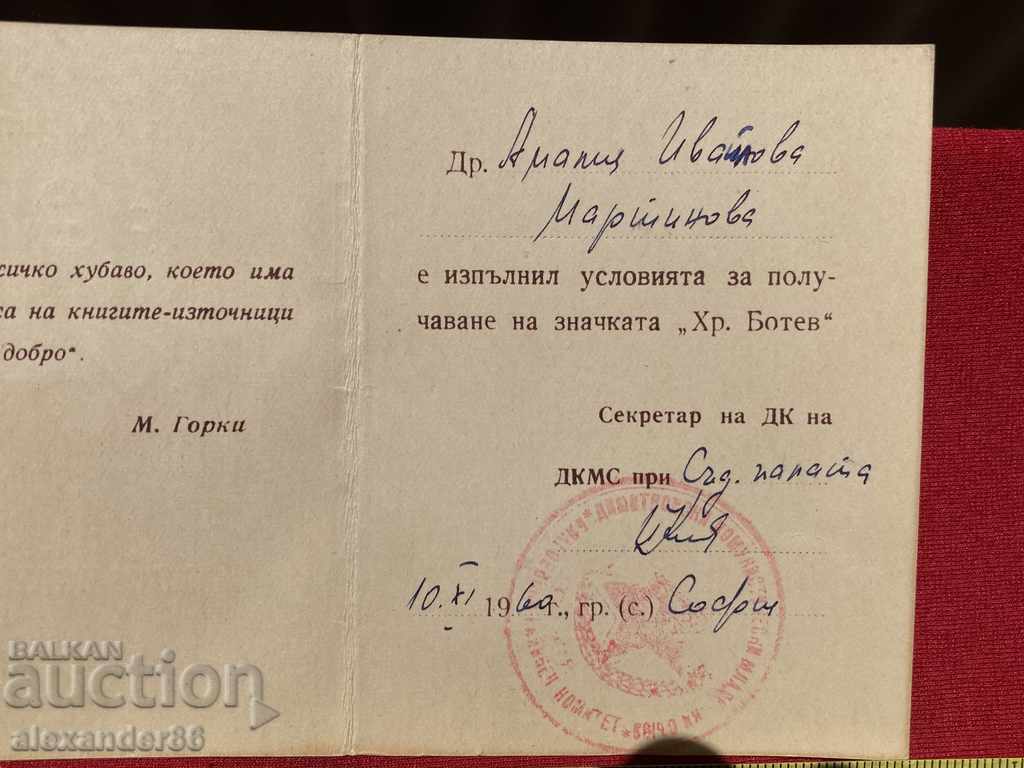 сичко хубаво, което има
на книгите-източници
добро".
М. Горки
Др. Амалия Иванова
Мартинова
е изпълнил условията за полу-
чаване на значката „Хр. Ботев"
Секретар на ДК на
ДКМС при Съд. палата
10.XI 1960 г., гр. (с.) София
BALKAN
auction
alexander86